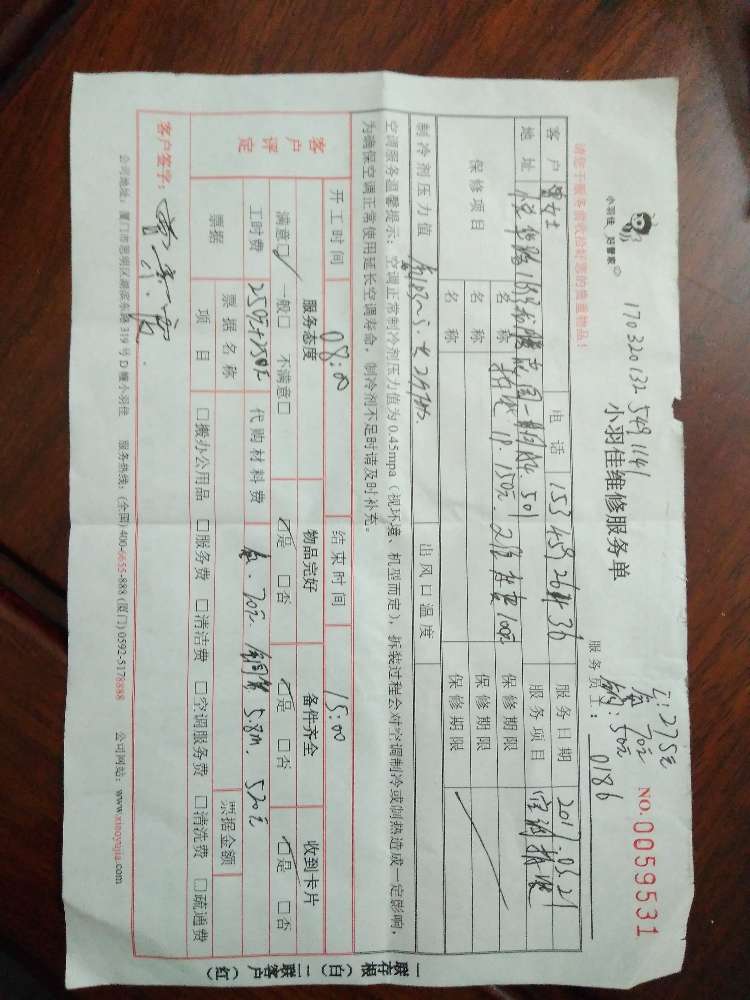 小羽佳 好管家
170320132 5491141
小羽佳维修服务单
服务员工: 0186
NO.0059531
请您于服务前收拾好您的贵重物品!
客户 女士 电话 服务日期 2017.03.21
地址 服务项目 空调拆装
保修项目 名称 保修期限
名称 保修期限
名称 保修期限
制冷剂压力值 出风口温度
空调服务温馨提示: 空调正常制冷剂压力值为 0.45mpa (视环境、机型而定), 拆装过程会对空调制冷或制热造成一定影响,
为确保空调正常使用延长空调寿命, 制冷剂不足时请及时补充。
开工时间 08:00 结束时间 15:00
客户评定 服务态度 物品完好 备件齐全 收到卡片
满意□ 一般□ 不满意□ □是 □否 □是 □否 □是 □否
工时费 250元+250元 代购材料费 70元 铜管 5.8m. 520元
票据 票据名称 票据金额
项目 □搬办公用品 □服务费 □清洁费 □空调服务费 □清洗费 □疏通费
客户签字:
公司地址: 厦门市思明区湖滨东路 319 号 D 幢小羽佳 服务热线: (全国) 400-6655-888 (厦门) 0592-5178888 公司网站: www.xiaoyujia.com
一联存根 (白) 二联客户 (红)